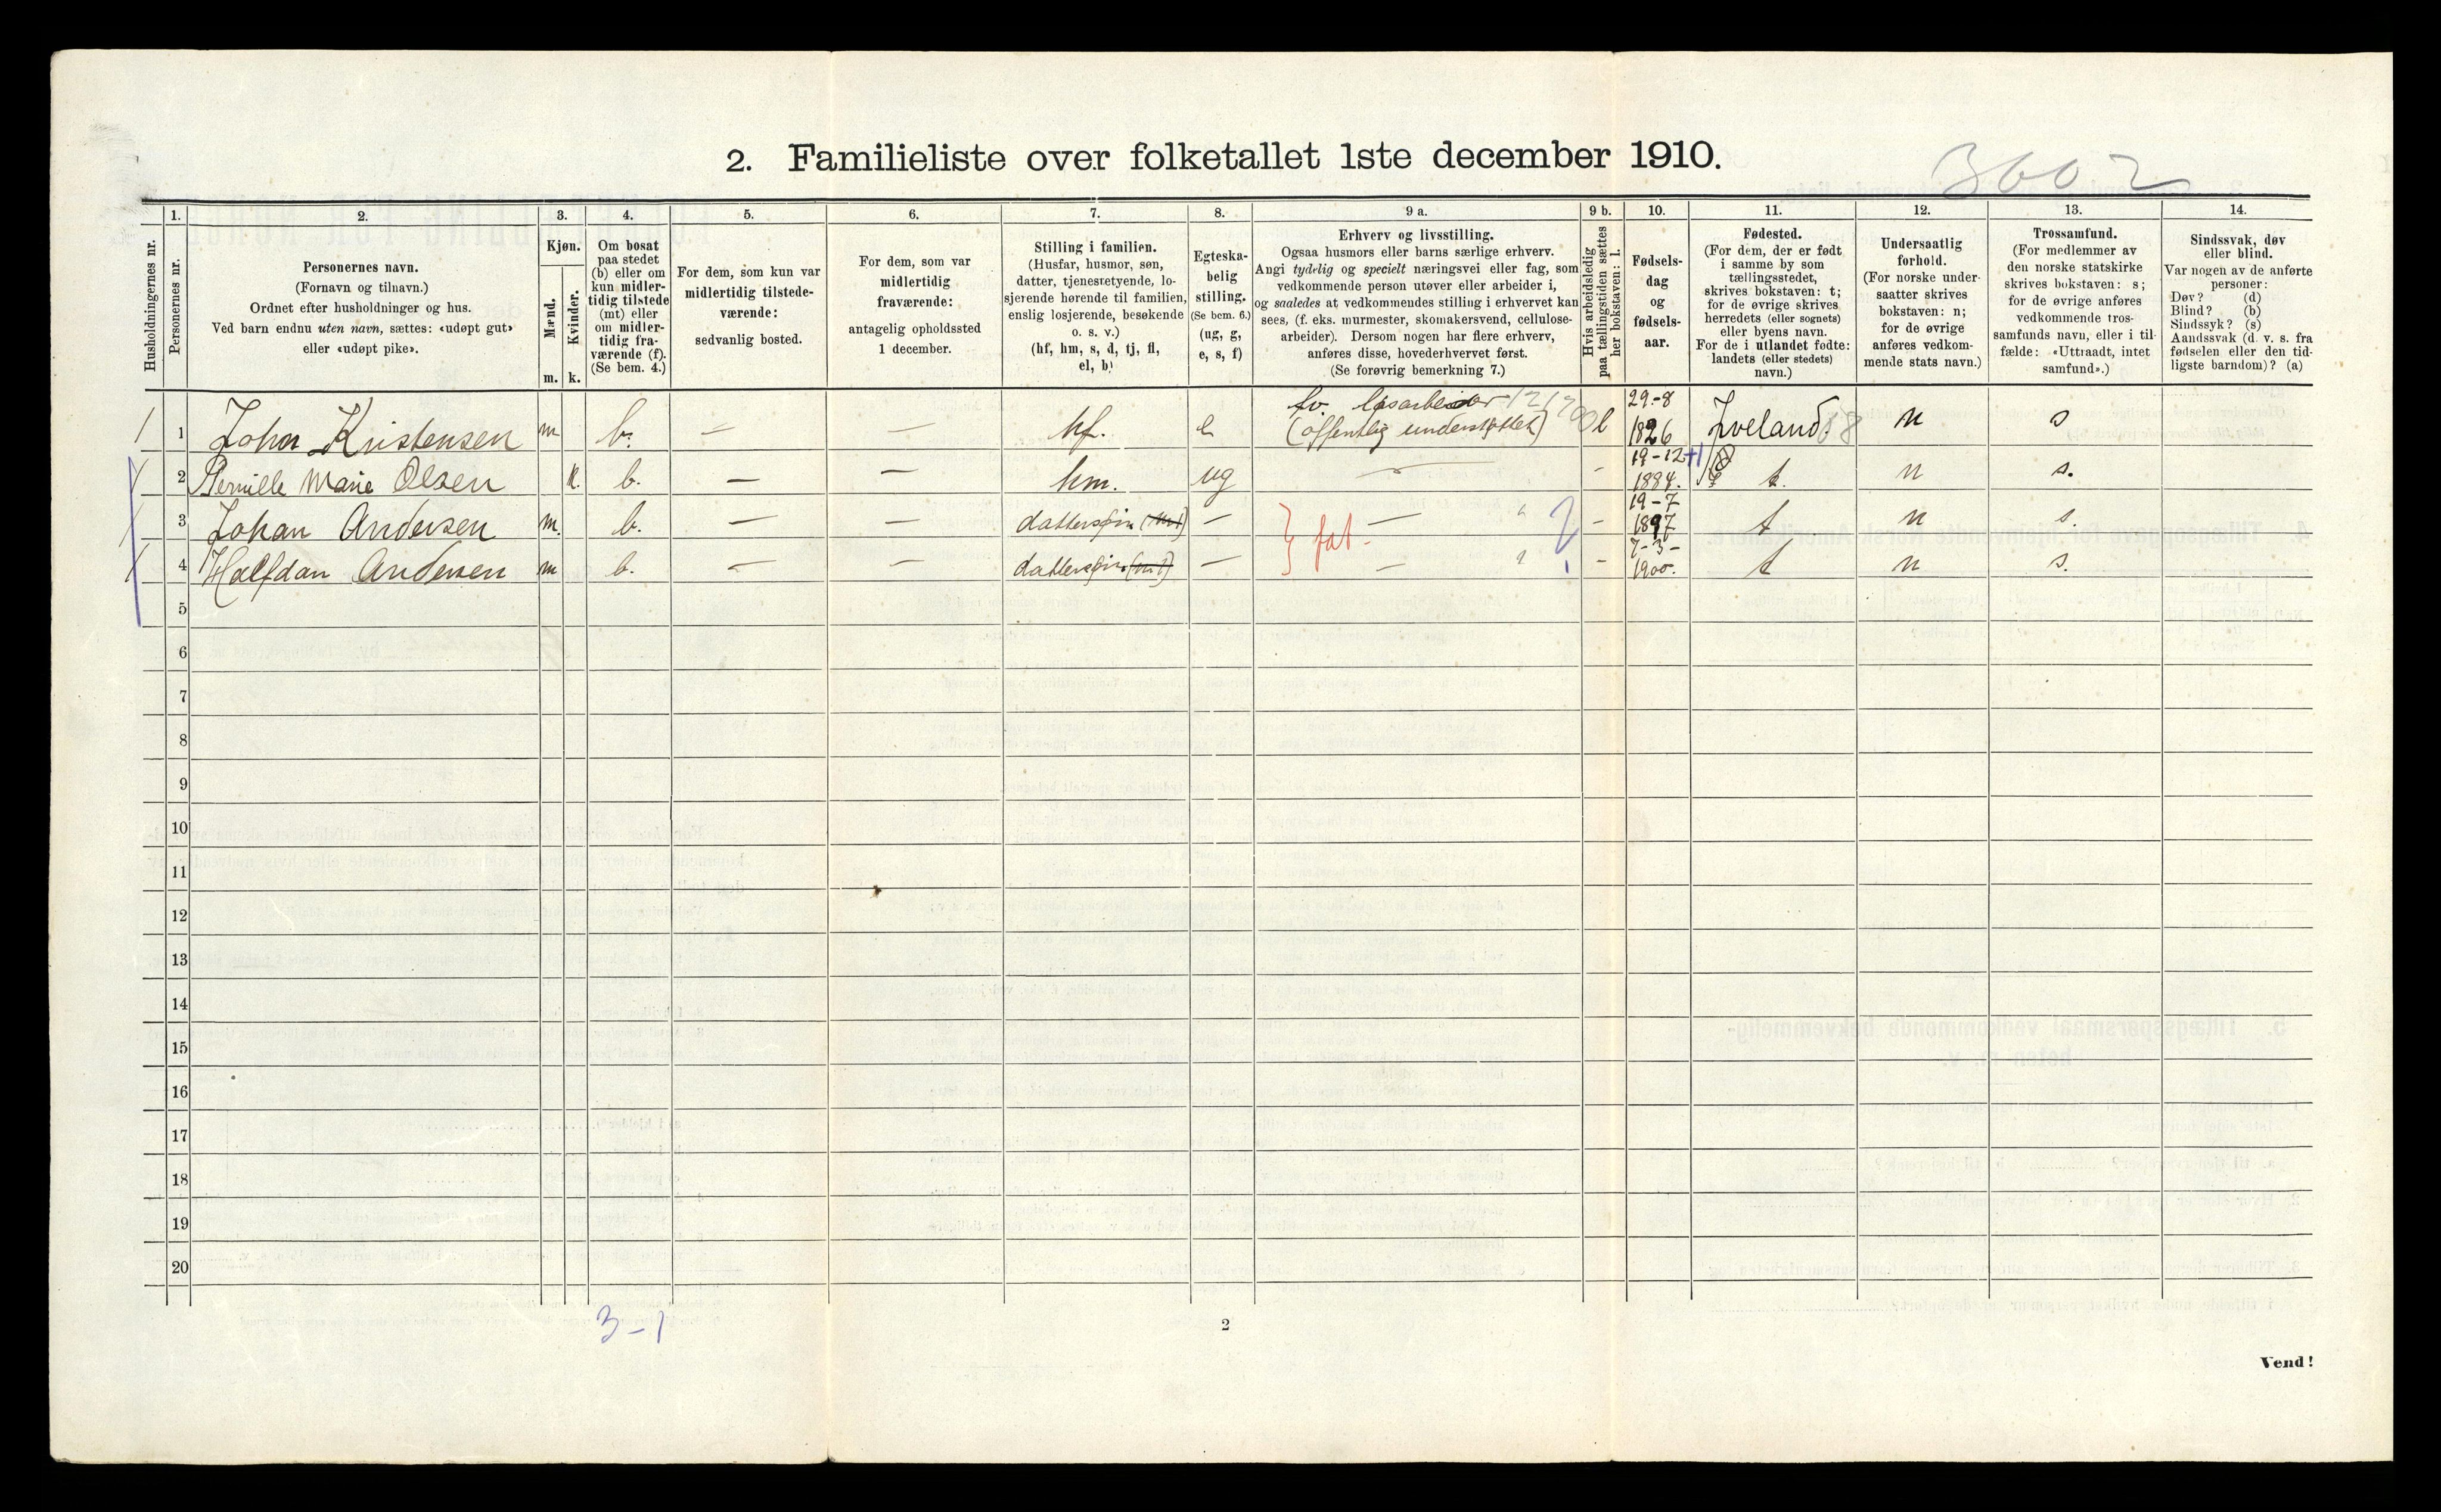 2. Familieliste over folketallet 1ste december 1910.
3602
1. 2. 3. 4. 5. 6. 7. 8. 9 a. 9 b. 10. 11. 12. 13. 14.
Husholdningernes nr.
Personernes nr.
Personernes navn.
(Fornavn og tilnavn.)
Ordnet efter husholdninger og hus.
Ved barn endnu uten navn, sættes: «udøpt gut»
eller «udøpt pike».
Kjøn.
Mænd.
Kvinder.
m. k.
Om bosat
paa stedet
(b) eller om
kun midler-
tidig tilstede
(mt) eller
om midler-
tidig fra-
værende (f).
(Se bem. 4.)
For dem, som kun var
midlertidig tilstede-
værende:
sedvanlig bosted.
For dem, som var
midlertidig
fraværende:
antagelig opholdssted
1 december.
Stilling i familien.
(Husfar, husmor, søn,
datter, tjenestetyende, lo-
sjerende hørende til familien,
enslig losjerende, besøkende
o. s. v.)
(hf, hm, s, d, tj, fl,
el, b)
Egteska-
belig
stilling.
(Se bem. 6.)
(ug, g,
e, s, f)
Erhverv og livsstilling.
Ogsaa husmors eller barns særlige erhverv.
Angi tydelig og specielt næringsvei eller fag, som
vedkommende person utøver eller arbeider i,
og saaledes at vedkommendes stilling i erhvervet kan
sees, (f. eks. murmester, skomakersvend, cellulose-
arbeider). Dersom nogen har flere erhverv,
anføres disse, hovederhvervet først.
(Se forøvrig bemerkning 7.)
Hvis arbeidsledig
paa tællingstiden sættes
her bokstaven: l.
Fødsels-
dag
og
fødsels-
aar.
Fødested.
(For dem, der er født
i samme by som
tællingsstedet,
skrives bokstaven: t;
for de øvrige skrives
herredets (eller sognets)
eller byens navn.
For de i utlandet fødte:
landets (eller stedets)
navn.)
Undersaatlig
forhold.
(For norske under-
saatter skrives
bokstaven: n;
for de øvrige
anføres vedkom-
mende stats navn.)
Trossamfund.
(For medlemmer av
den norske statskirke
skrives bokstaven: s;
for de øvrige anføres
vedkommende tros-
samfunds navn, eller i til-
fælde: «Uttraadt, intet
samfund».)
Sindssvak, døv
eller blind.
Var nogen av de anførte
personer:
Døv? (d)
Blind? (b)
Sindssyk? (s)
Aandssvak (d. v. s. fra
fødselen eller den tid-
ligste barndom)? (a)
1 1 John Kristensen m b. — — hf. e fv. løsarbeider (offentlig understøttet) l 29-8 1826 Iveland. n s
2 Pernille Marie Olsen k. b. — — hm. ug — - 19-12 1884. t. n s.
3 Johan Andersen m. b. — — dattersøn — — - 19-7 1897 t n s.
4 Halfdan Andersen m b. — — dattersøn — — - 7-3- 1900. t n s.
} fat.
5
6
7
8
9
10
11
12
13
14
15
16
17
18
19
20
3-1
2
Vend!